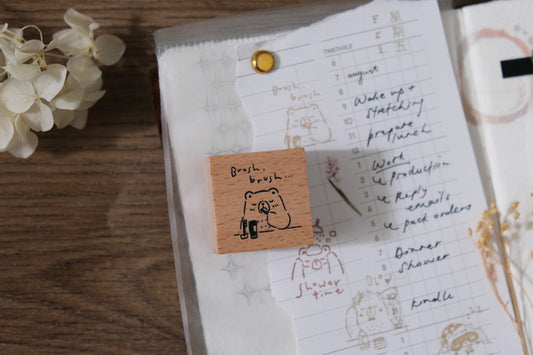 Fri
星期五
TIMETABLE
6
7 august
8
9 Wake up +
10 stretching
11 prepare
12 lunch
1 Work
2 ↳ production
3 ↳ Reply
4 emails
5 ↳ pack orders
6
7 Dinner
8 Shower
kindle
Brush,
brush...
Brush,
brush...
Shower
time